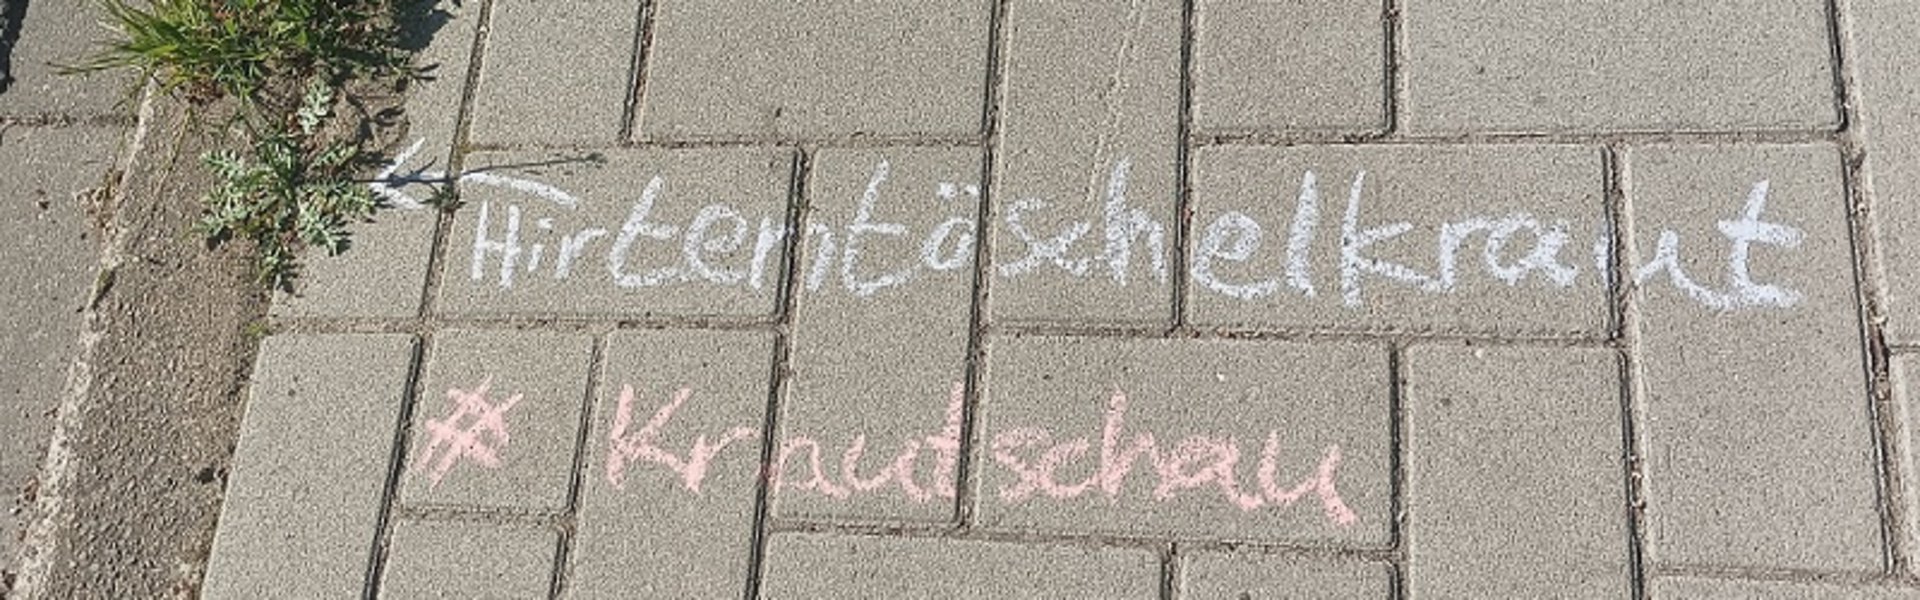 Hirtentöschelkraut
# Krautschau